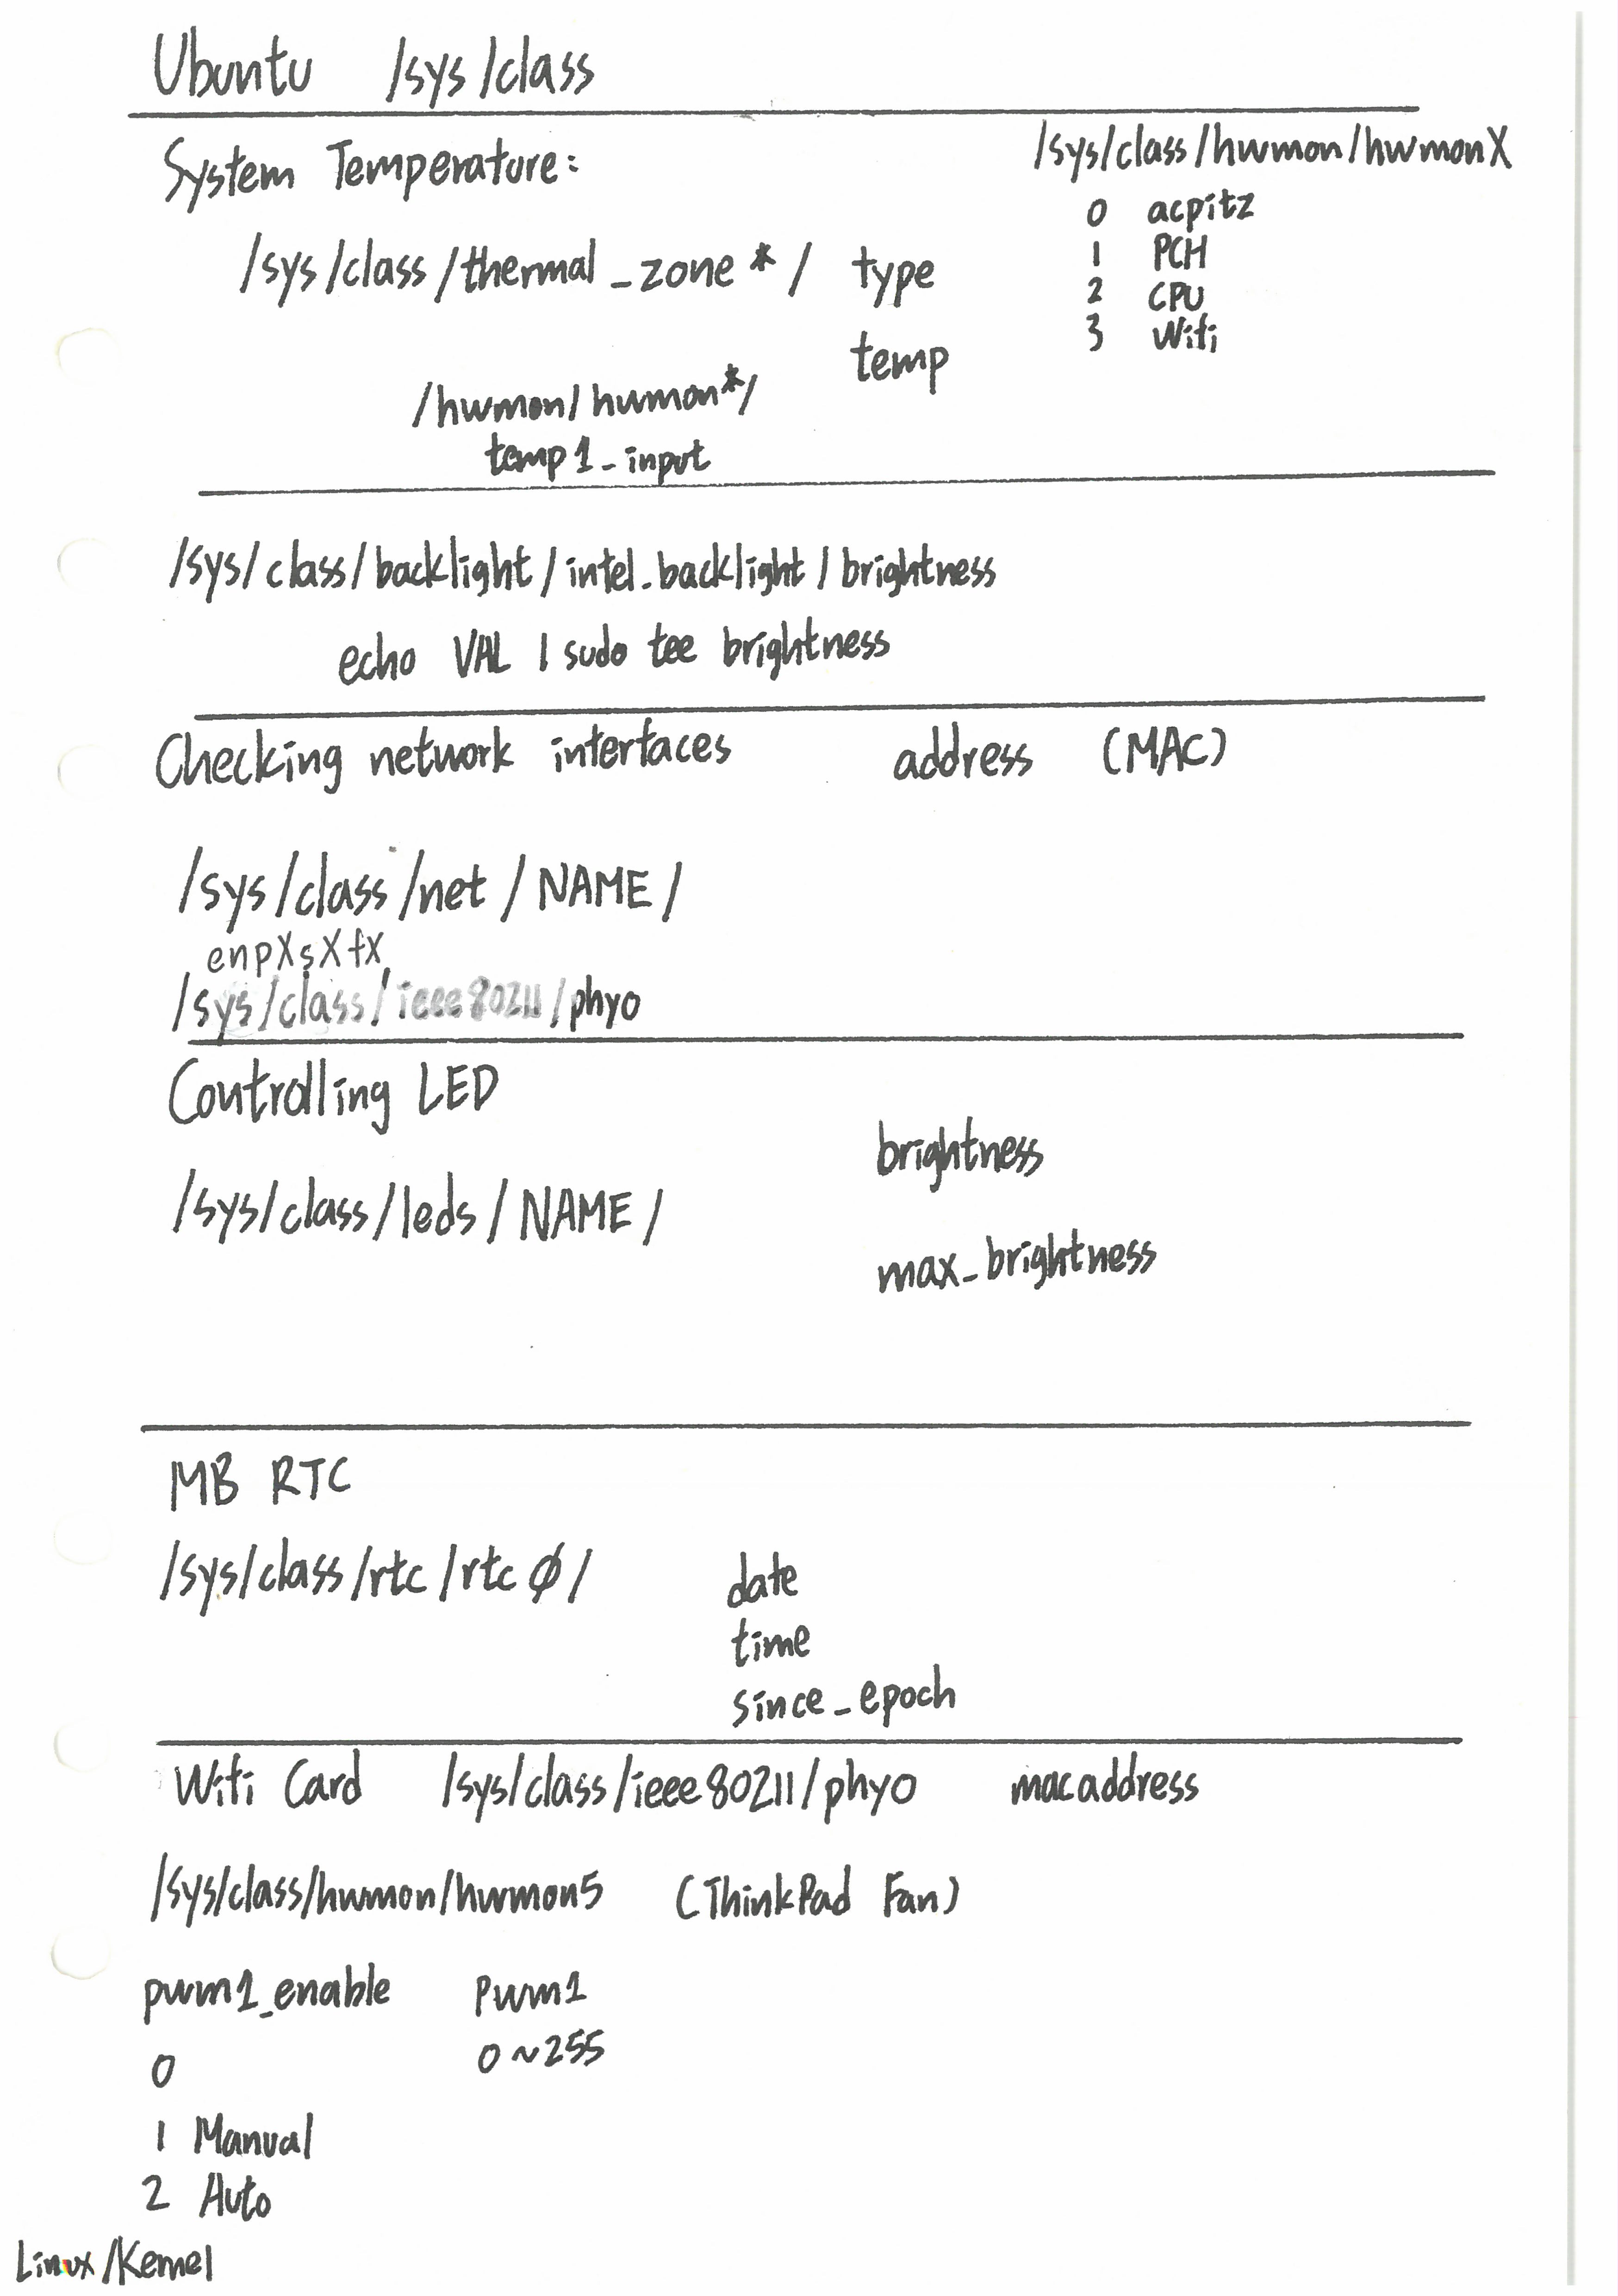 Ubuntu /sys/class
System Temperature:
/sys/class/hwmon/hwmonX
0 acpitz
1 PCH
2 CPU
3 Wifi
/sys/class/thermal_zone*/ type
temp
/hwmon/hwmon*/
temp1_input
/sys/class/backlight/intel_backlight/brightness
echo VAL | sudo tee brightness
Checking network interfaces address (MAC)
/sys/class/net/NAME/
enpXsXfX
/sys/class/ieee80211/phy0
Controlling LED
brightness
/sys/class/leds/NAME/
max_brightness
MB RTC
/sys/class/rtc/rtc0/ date
time
since_epoch
Wifi Card /sys/class/ieee80211/phy0 macaddress
/sys/class/hwmon/hwmon5 (ThinkPad Fan)
pwm1_enable Pwm1
0 0~255
1 Manual
2 Auto
Linux/Kernel